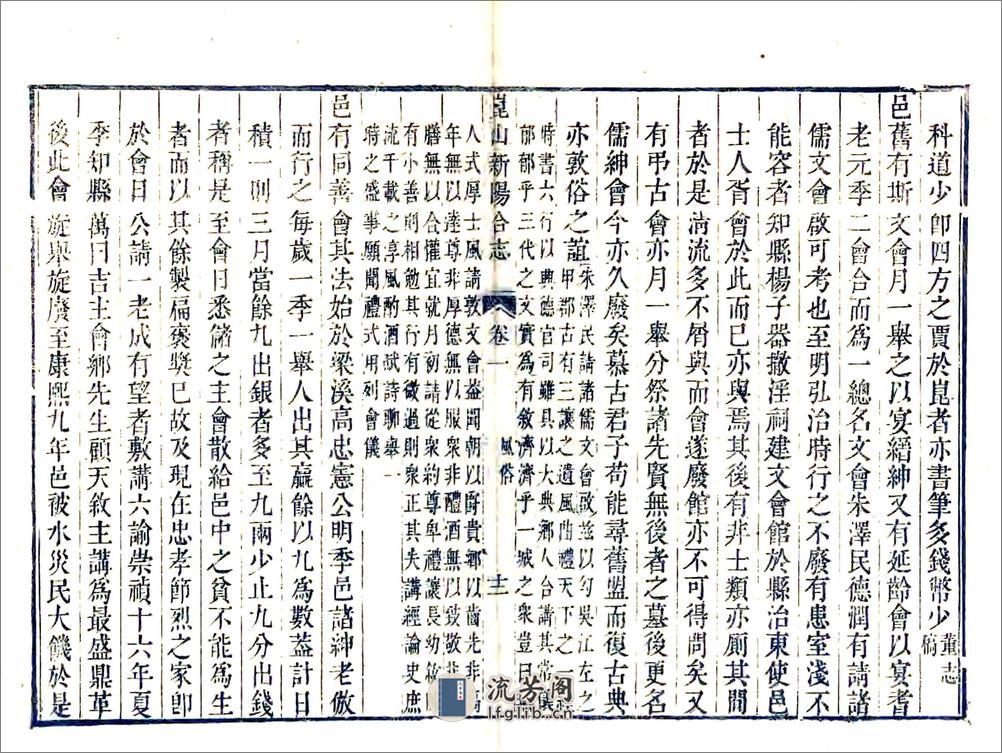 科道少卽四方之賈於崑者亦書筆多錢幣少董志稿
邑舊有斯文會月一舉之以宴縉紳又有延齡會以宴耆
老元季二會合而爲一總名文會朱澤民德潤有請諸
儒文會啟可考也至明弘治時行之不廢有患室淺不
能容者知縣楊子器撤淫祠建文會館於縣治東使邑
士人胥會於此而已亦與焉其後有非士類亦廁其間
者於是淸流多不屑與而會遂廢館亦不可得問矣又
有弔古會亦月一舉分祭諸先賢無後者之墓後更爲
儒紳會今亦久廢矣慕古君子苟能尋舊盟而復古典
亦敦俗之誼朱澤民請諸儒文會啟玆以勾吳江左之甲郡古有三讓之遺風曲禮天下之
時書六行以典德官司雖具以大典鄉人合講其常儀郁郁乎三代之文實爲有敘濟濟乎一城之衆豈曰
崑山新陽合志
卷一
風俗
十二
人式厚士風請敦文會蓋聞朝以爵貴鄉以齒先非年無以達尊非厚德無以服衆非醴酒無以致敬非
膳無以合懽宜就月朔請從衆約尊卑禮讓長幼有小善則相勉其行有微過則衆正其失講經論史庶
流千載之享風酌酒賦詩聊舉一時之盛事願聞禮式用列會儀
邑有同善會其法始於梁溪高忠憲公明季邑諸紳老倣
而行之每歲一季一舉人出其贏餘以九爲數蓋計日
積一則三月當餘九出銀者多至九兩少止九分出錢
者稱是至會日悉儲之主會散給邑中之貧不能爲生
者而以其餘製福褒獎已故及現在忠孝節烈之家卽
於會日公請一老成有望者敷講六諭崇禎十六年夏
季知縣萬曰吉主會鄉先生顧天敘主講爲最盛鼎革
後此會旋舉旋廢至康熙九年邑被水災民大饑於是
流芳閣
lfglib.cn